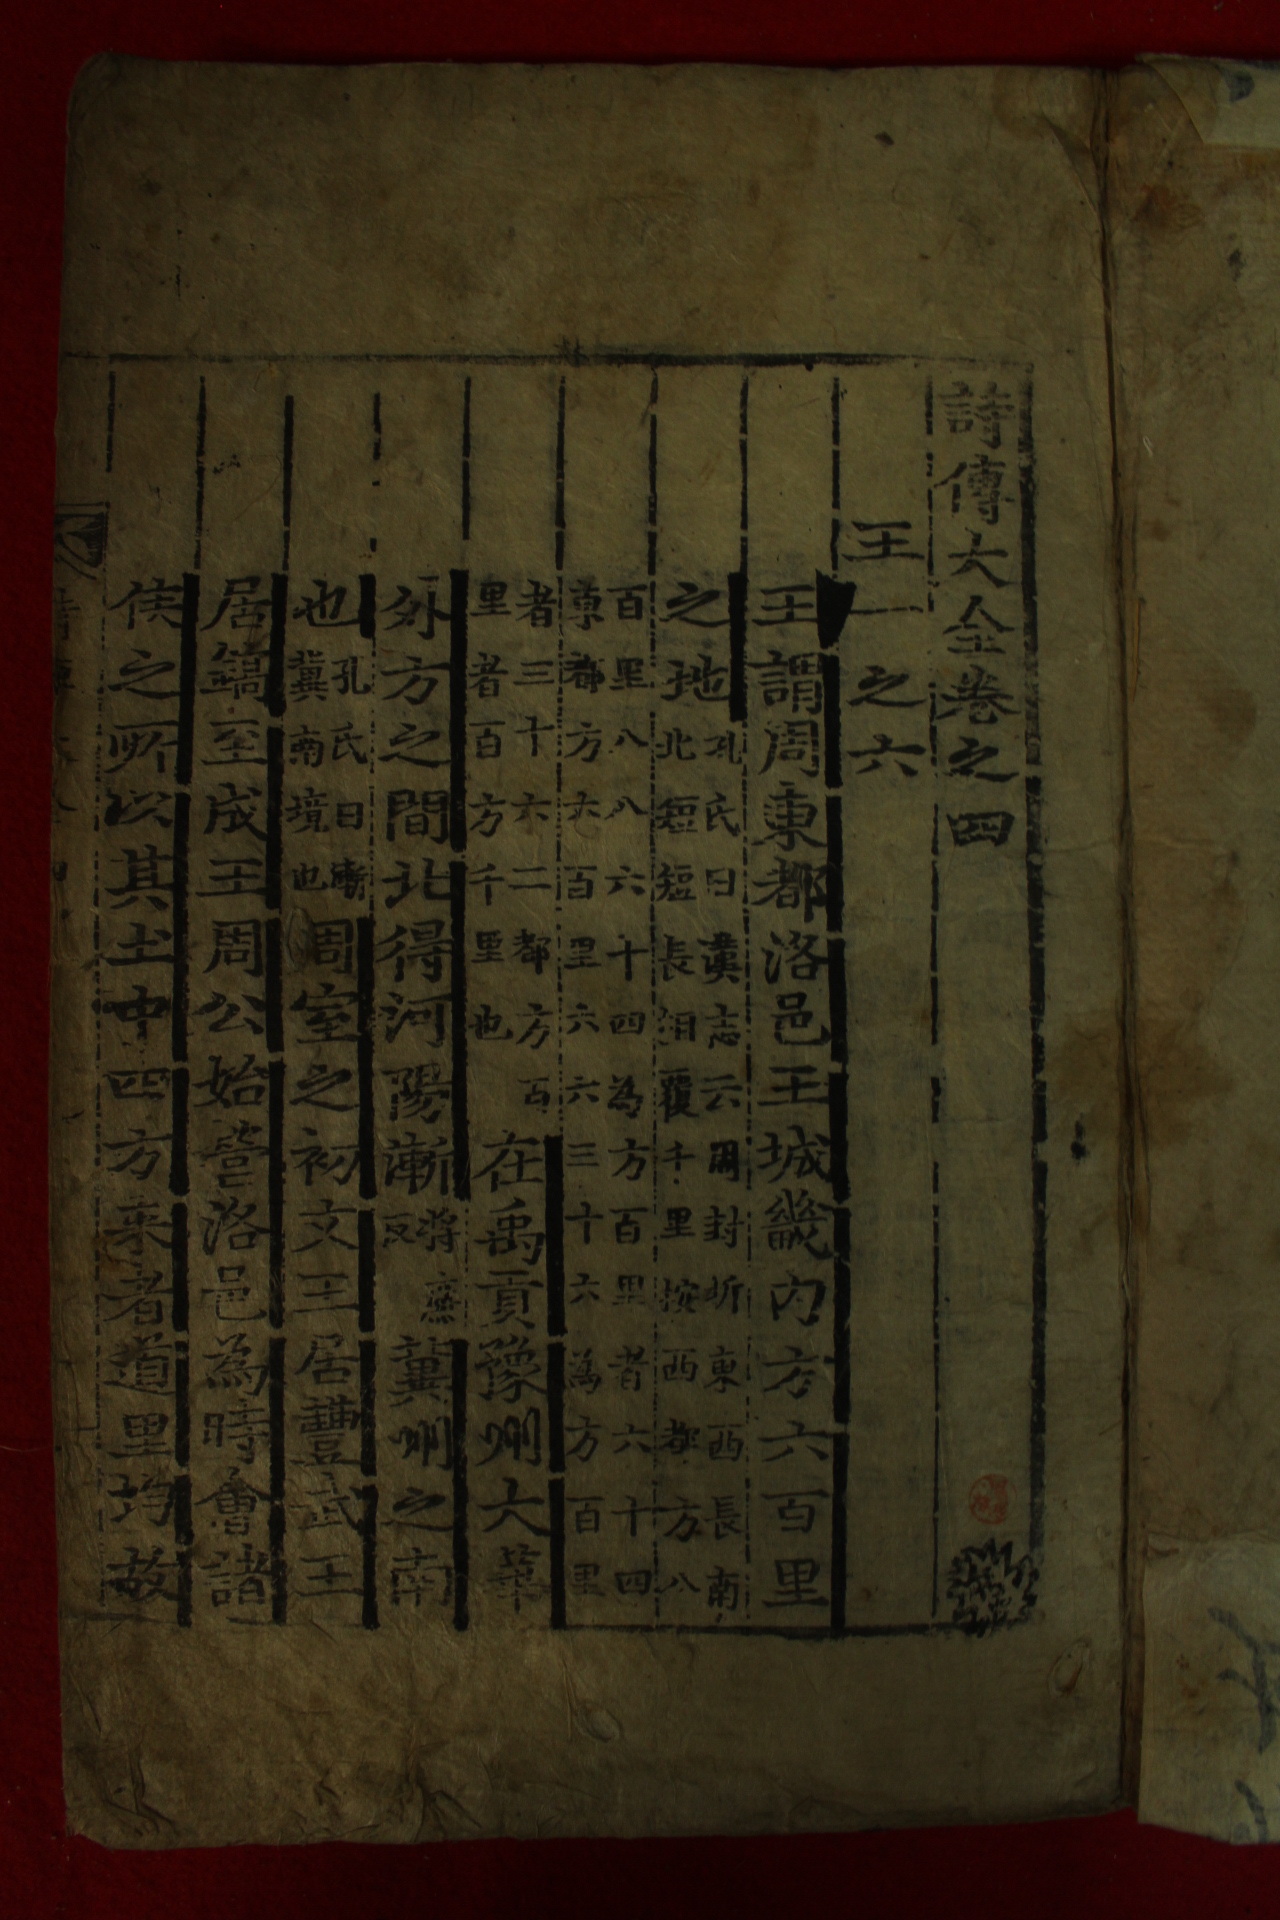 詩傳大全卷之四
王一之六
王謂周東都洛邑王城畿內方六百里
之地
孔氏曰漢志云周封圻東西長南
北短短長相覆千里按西都方八
百里八八六十四為方百里者六十四
東都方六百里六六三十六為方百里
者三十六二都方百
里者百方千里也
在禹貢豫州大華
外方之間北得河陽漸
將廉
反
冀州之南
也
孔氏曰漸
冀南境也
周室之初文王居豐武王
居鎬至成王周公始營洛邑為時會諸
侯之所以其土中四方來者道里均故